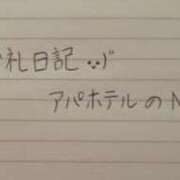 礼日記 ••)"
アパホテルのN